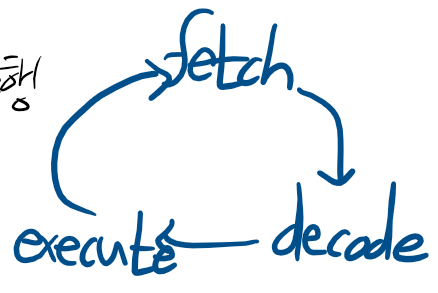 fetch
decode
execute